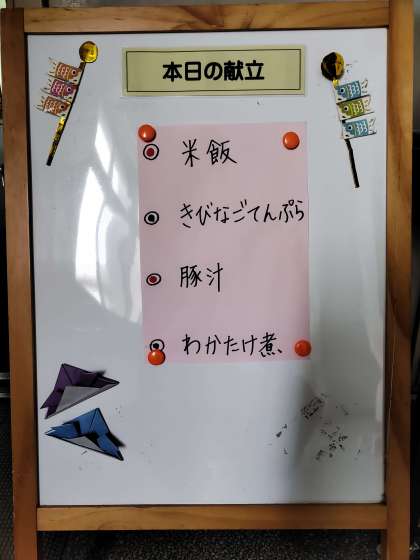 本日の献立
米飯
きびなごてんぷら
豚汁
わかたけ煮